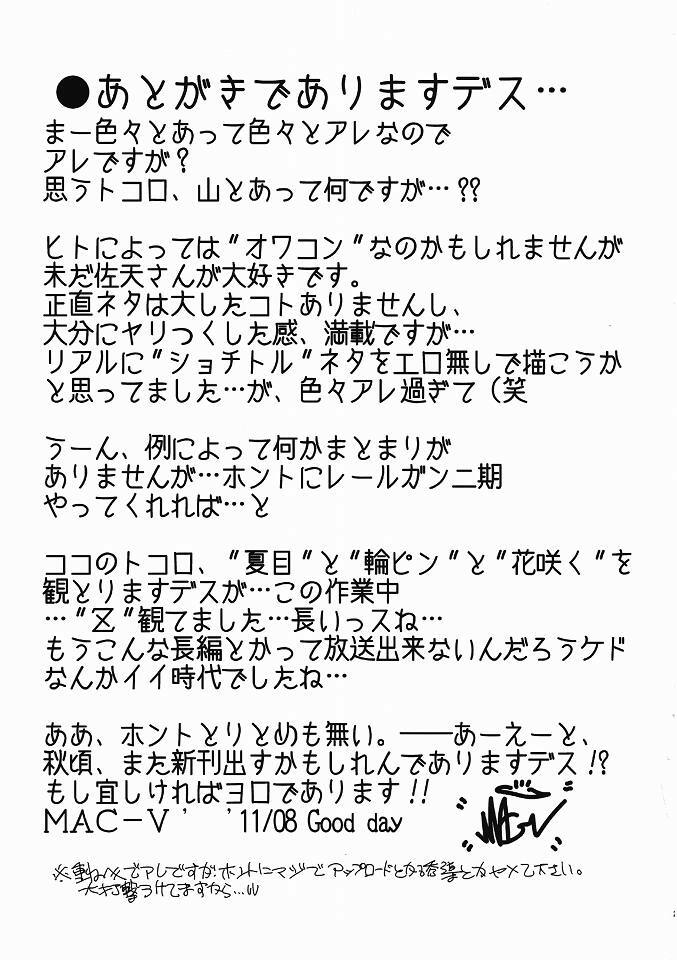 ●あとがきでありますデス…
まー色々とあって色々とアレなので
アレですが？
思うトコロ、山とあって何ですが…⁇
ヒトによっては〝オワコン〟なのかもしれませんが
未だ佐天さんが大好きです。
正直ネタは大したコトありませんし、
大分にヤリつくした感、満載ですが…
リアルに〝ショチトル〟ネタをエロ無しで描こうか
と思ってました…が、色々アレ過ぎて（笑
うーん、例によって何かまとまりが
ありませんが…ホントにレールガン二期
やってくれれば…と
ココのトコロ、〝夏目〟と〝輪ピン〟と〝花咲く〟を
観とりますデスが…この作業中
…〝Z〟観てました…長いっスね…
もうこんな長編とかって放送出来ないんだろうケド
なんかイイ時代でしたね…
ああ、ホントとりとめも無い。――あーえーと、
秋頃、また新刊出すかもしれんでありますデス!?
もし宜しければヨロであります!!
MAC－V ’ ’11/08 Good day
MAC-V
※重ね々でアレですが、ホントにマジでアップロードとかる誘導とかヤメて下さい。
大打撃うけてますから…w